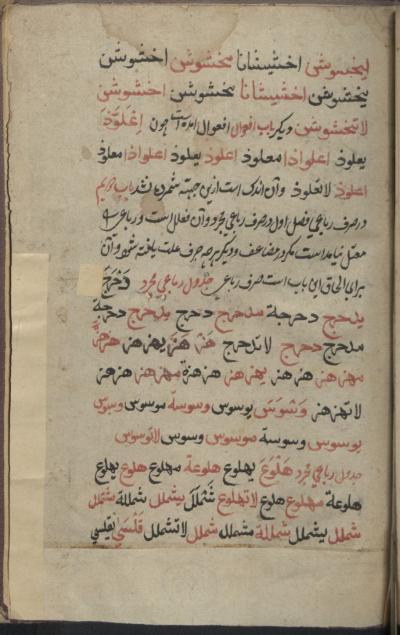 یخشوشن اخشیشانا یخشوشن اخشوشن
یخشوشن اخشیشانا یخشوشن اخشوشن
لا تخشوشن دیگر باب افعوال افعوال آمده است چون اعلوّذ
یعلوذ اعلواذا معلوذ اعلوذ یعلوذ اعلواذا معلوذ
اعلوذ لا تعلوذ و آن اندک است ازین جهة شمرده نشد باب دویم
در صرف رباعی فصل اول در صرف رباعی مجرد و آن فعلل است و رباعی
معتل نیامده است مگر در مضاعف و دیگر هر چه حرف علت یافته شود و آن
برای الحاق این باب است صرف رباعی جدول رباعی مجرد دحرج
یدحرج دحرجة مدحرج دحرج یدحرج دحرجة
مدحرج دحرج لا تدحرج هزهز یهزهز هزهزة
مهزهز هزهز یهزهز هزهزة مهزهز هزهز
لا تهزهز وسوس یوسوس وسوسة موسوس وسوس
یوسوس وسوسة موسوس وسوس لا توسوس
جدول رباعی مجرد هلوع یهلوع هلوعة مهلوع هلوع یهلوع
هلوعة مهلوع هلوع لا تهلوع شملل یشملل شمللة مشملل
شملل یشملل شمللة مشملل شملل لا تشملل قلسی یقلسی